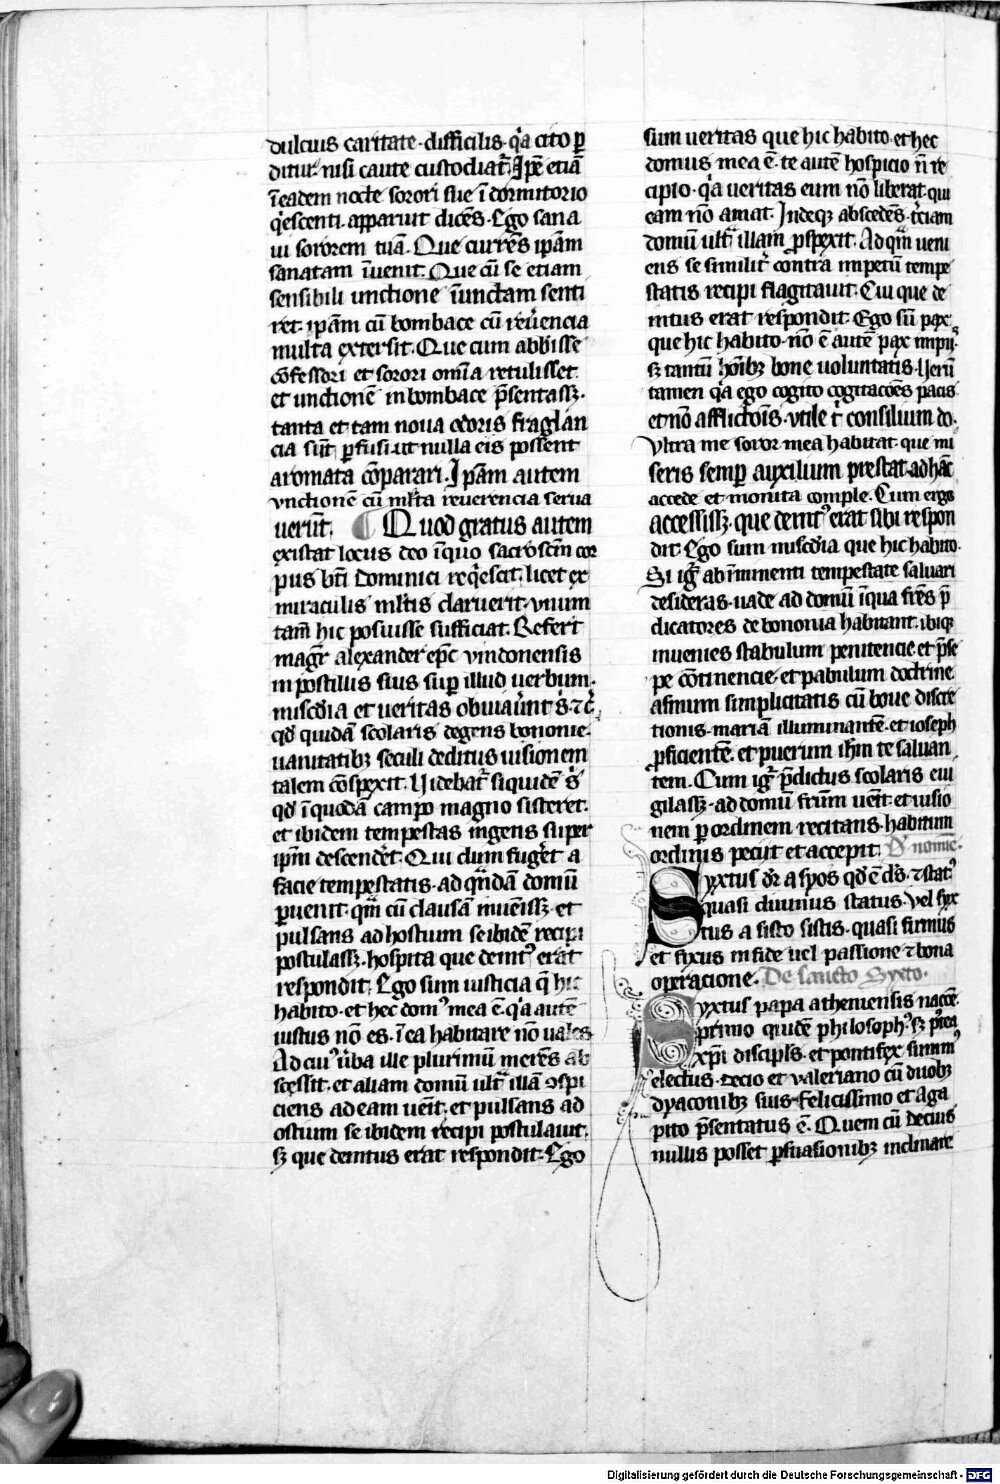 dulcius caritate. difficilis. q̾a cito ꝑ
ditur. nisi caute custodiat᷑. Ip̄e etiā
ī eadem nocte sorori sue ī dormitorio
q̾escenti. apparuit dicēs. Ego sana
ui sororem tuā. Que currēs ip̄am
sanatam īuenit. Que cū se etiam
sensibili unctione īunctam senti
ret. ip̄am cū bombace cū reu̾encia
multa extersit. Que cum abb̄isse
cōfessori et sorori om̄ia retulisset
et unctionē in bombace p̄sentassꝫ.
tanta et tam noua odoris fraglan
cia sūt ꝑfusi. ut nulla eis possent
aromata cōparari. Ipsam autem
vnctionē cū ml̄ta reuerencia serua
uerūt. ¶ Quod gratus autem
existat locus deo ī quo sacrosctm̄ cor
pus bt̄i Dominici req̾escit. licet ex
miraculis ml̄tis claruerit. vnum
tam̄ hic posuisse sufficiat. Refert
magr̄ alexander ep̄c vindonensis
in postillis suis suꝑ illud uerbum.
mis̄cdia et ueritas obuiauer̄nt s̾. ⁊ c̾.
qd̾ quidā scolaris degens bononie.
uanitatibꝫ seculi deditus uisionem
talem cōspexit. Videbat᷑ siquidē s̾
qd̾ ī quodā campo magno sisteret.
et ibidem tempestas ingens super
ip̄m descendēt. Qui dum fug̾et a
facie tempestatis. ad quādā domū
ꝑuenit. quā cū clausā inuēissꝫ. et
pulsans ad hostium se ibidē recipi
postulassꝫ. hospita que deint᷒ erat
respondit. Ego sum iusticia q̄ hic
habito. et hec dom᷒ mea ē. q̾a autē
iustus nō es. ī ea habitare nō uales
Ad cui᷒ u̾ba ille plurimū merēs ab
scessit. et aliam domū ult᷑ illā ꝯspi
ciens ad eam uēit. et pulsans ad
ostium se ibidem recipi postulauit.
sꝫ que deintus erat respondit. Ego
sum ueritas que hic habito. et hec
domus mea ē. te autē hospicio n̄ re
cipio. q̾a ueritas eum nō liberat. qui
eam nō amat. Indeqꝫ abscedēs. t̾ciam
domū ult᷑ illam ꝓspexit. Ad quā ueni
ens se similit᷑ contra impetū tempe
statis recipi flagitauit. Cui que de
intus erat respondit. Ego sū pax
que hic habito. nō ē autē pax impiis.
sꝫ tantū hōibꝫ bone uoluntatis. Uerū
tamen q̾a ego cogito cogitacōes pacis
et nō afflictōis. vtile t̾ consilium do.
Vltra me soror mea habitat. que mi
seris semꝑ auxilium prestat. ad hāc
accede et monita comple. Cum ergo
accessissꝫ. que deint᷒ erat sibi respon
dit. Ego sum mis̄cdia que hic habito.
Si ig̾ ab īminenti tempestate saluari
desideras. uade ad domū ī qua fr̄es p̄
dicatores de bononia habitant. ibiqꝫ
inuenies stabulum penitencie. et p̄se
pe cōtinencie. et pabulum doctrine
asinum simplicitatis cū boue discre
tionis. mariā illuminantē. et ioseph
ꝓficientē. et puerum ih̄m te saluan
tem. Cum ig̾ p̄dictus scolaris eui
gilassꝫ. ad domū fr̄um uēit. et uisio
nem ꝑ ordinem recitans. habitum
ordinis peciit et accepit. D̾ nomīe.
Syxtus dr̄ a syos qd̾ ē ds̄. ⁊ stat᷒
quasi diuinus status. Vel syx
tus a sisto sistis. quasi firmus
et fixus in fide uel passione ⁊ bona
operacione. De sancto Syxto.
Syxtus papa atheniensis nacōe
primo quidē philosoph᷒. sꝫ p̾ea
xp̄i discipl̄s. et pontifex summ᷒
electus. Decio et Valeriano cū duobꝫ
dyaconibꝫ suis Felicissimo et Aga
pito p̄sentatus ē. Quem cū Decius
nullis posset ꝑsuasionibꝫ inclinare
Digitalisierung gefördert durch die Deutsche Forschungsgemeinschaft - DFG